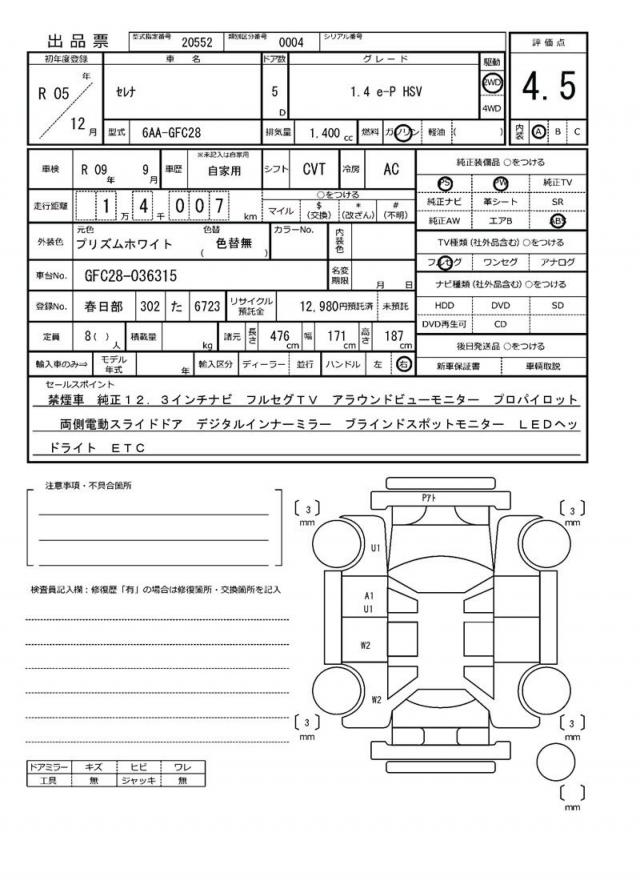 出品票 型式指定番号 20552 類別区分番号 0004 シリアル番号
評価点
初年度登録 車名 ドア数 グレード 駆動
R 05 年 12 月 ｾﾚﾅ 5 D 1.4 e-P HSV 2WD 4WD
4.5
型式 6AA-GFC28 排気量 1,400 cc 燃料 ガソリン 軽油 ( ) 内装 A B C
車検 R 09 年 9 月 車歴 ※未記入は自家用 自家用 シフト CVT 冷房 AC
純正装備品 ○をつける
PS PW 純正TV
純正ナビ 革シート SR
純正AW エアB ABS
走行距離 1 万 4 千 0 0 7 km ○をつける
マイル $ (交換) * (改ざん) # (不明)
外装色 元色 プリズムホワイト 色替 ( 色替無 ) カラーNo. 内装色
TV種類(社外品含む) ○をつける
フルセグ ワンセグ アナログ
車台No. GFC28-036315 名変期限 月 日
ナビ種類(社外品含む) ○をつける
HDD DVD SD
DVD再生可 CD
登録No. 春日部 302 た 6723 リサイクル預託金 12,980円預託済 未預託
定員 8( ) 人 積載量 kg 諸元 長さ 476 cm 幅 171 cm 高さ 187 cm
後日発送品 ○をつける
新車保証書 車輌取説
輸入車のみ⇒ モデル年式 年 輸入区分 ディーラー 並行 ハンドル 左 右
セールスポイント
禁煙車 純正12.3インチナビ フルセグTV アラウンドビューモニター プロパイロット
両側電動スライドドア デジタルインナーミラー ブラインドスポットモニター LEDヘッ
ドライト ETC
注意事項・不具合箇所
検査員記入欄：修復歴「有」の場合は修復箇所・交換箇所を記入
Pｱﾄ
3 mm
3 mm
U1
A1
U1
W2
W2
3 mm
3 mm
mm
ドアミラー キズ ヒビ ワレ
工具 無 ジャッキ 無